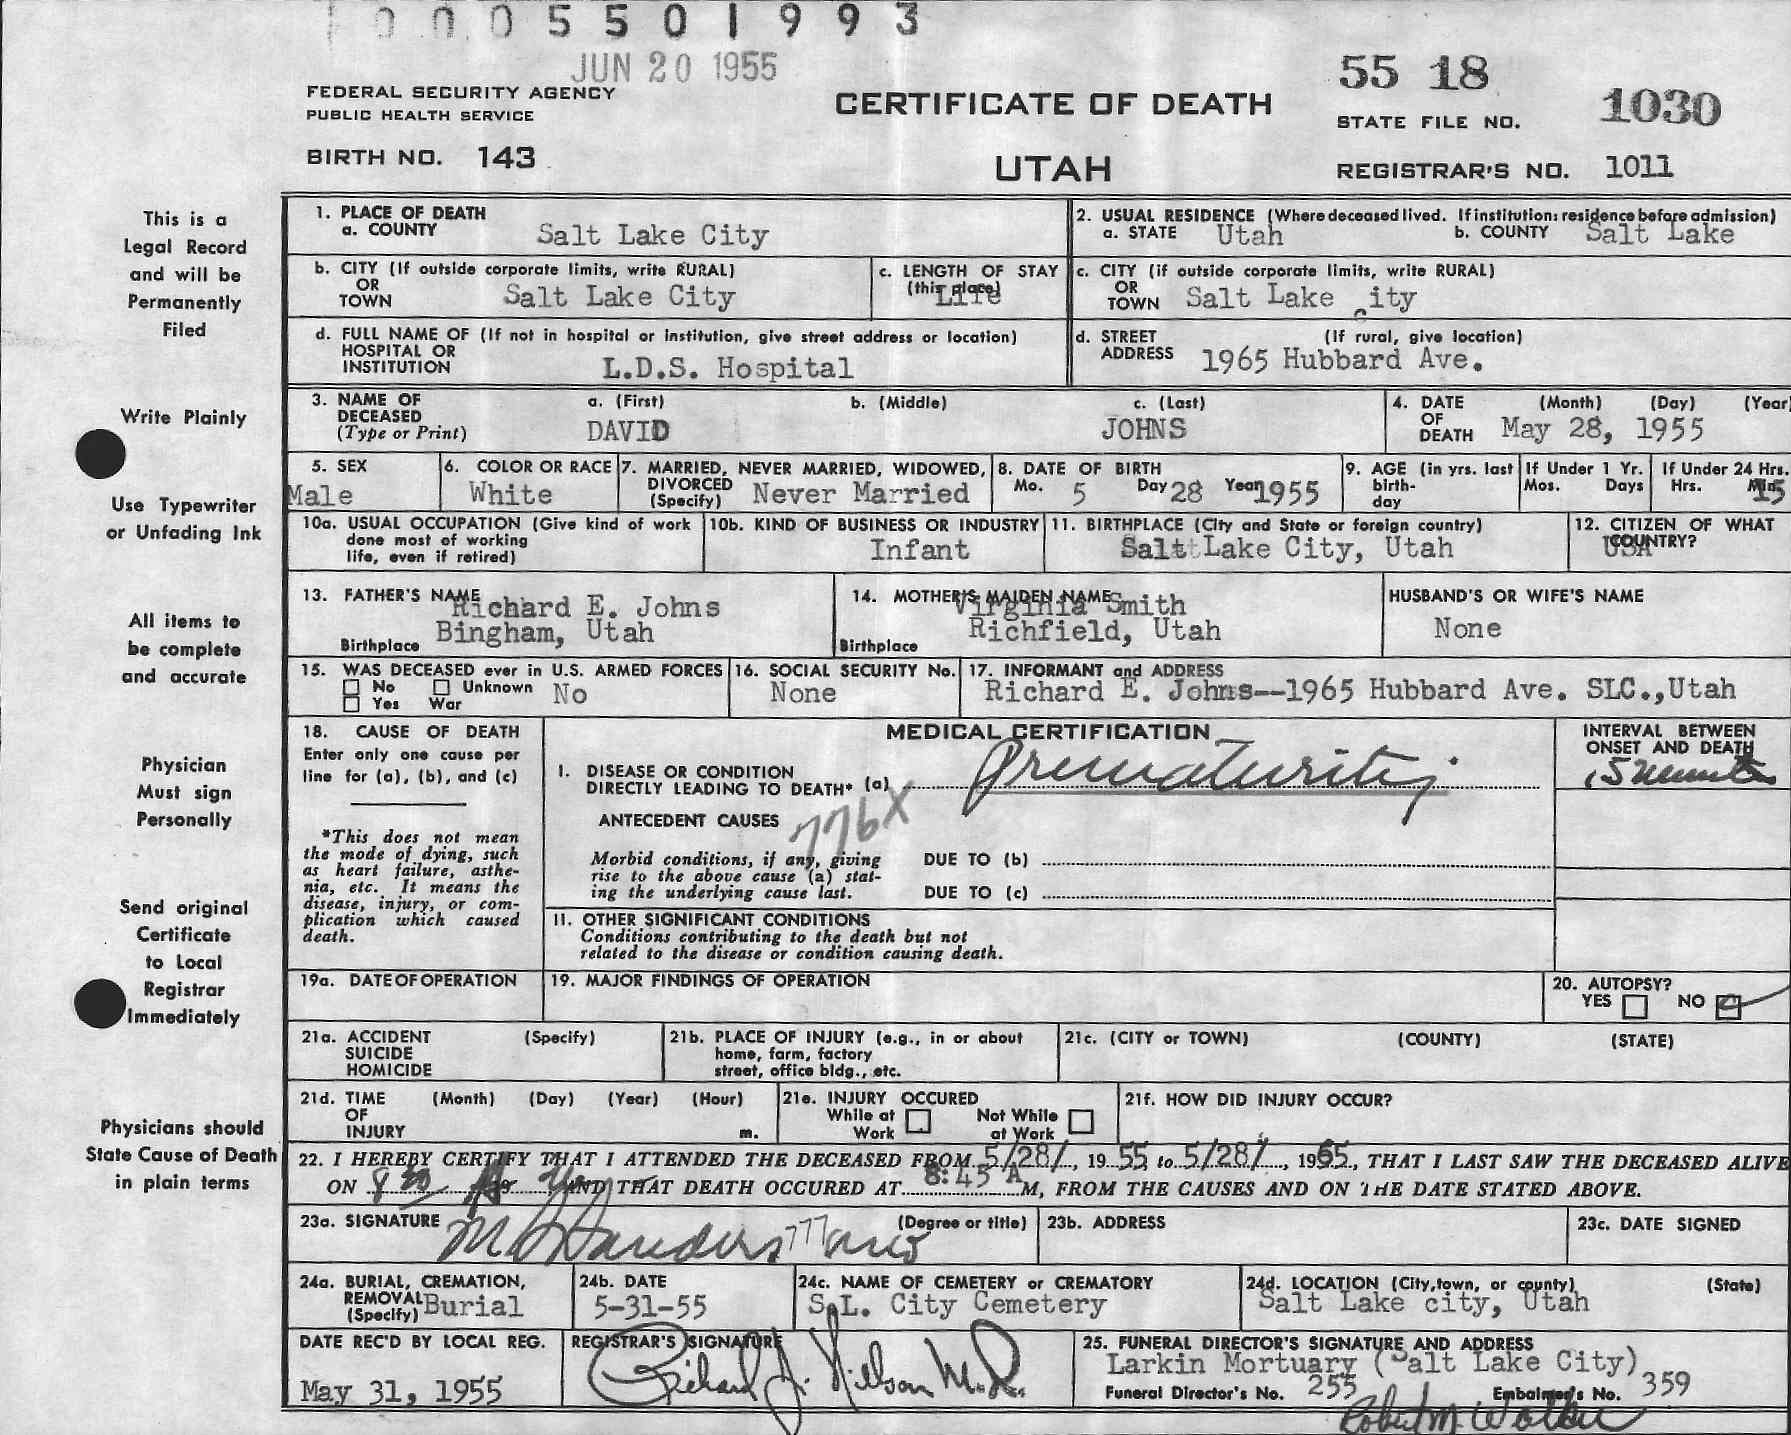 0005501993
JUN 20 1955
FEDERAL SECURITY AGENCY
PUBLIC HEALTH SERVICE
BIRTH NO. 143
CERTIFICATE OF DEATH
UTAH
55 18
STATE FILE NO. 1030
REGISTRAR'S NO. 1011
This is a
Legal Record
and will be
Permanently
Filed
Write Plainly
Use Typewriter
or Unfading Ink
All items to
be complete
and accurate
Physician
Must sign
Personally
Send original
Certificate
to Local
Registrar
Immediately
Physicians should
State Cause of Death
in plain terms
1. PLACE OF DEATH
a. COUNTY Salt Lake City
2. USUAL RESIDENCE (Where deceased lived. If institution: residence before admission)
a. STATE Utah b. COUNTY Salt Lake
b. CITY (If outside corporate limits, write RURAL)
OR
TOWN Salt Lake City
c. LENGTH OF STAY
(this place) Life
c. CITY (if outside corporate limits, write RURAL)
OR
TOWN Salt Lake ity
d. FULL NAME OF (If not in hospital or institution, give street address or location)
HOSPITAL OR
INSTITUTION L.D.S. Hospital
d. STREET (If rural, give location)
ADDRESS 1965 Hubbard Ave.
3. NAME OF a. (First) b. (Middle) c. (Last)
DECEASED
(Type or Print) DAVID JOHNS
4. DATE (Month) (Day) (Year)
OF
DEATH May 28, 1955
5. SEX
Male
6. COLOR OR RACE
White
7. MARRIED, NEVER MARRIED, WIDOWED,
DIVORCED
(Specify) Never Married
8. DATE OF BIRTH
Mo. 5 Day 28 Year 1955
9. AGE (in yrs. last
birth-
day
If Under 1 Yr.
Mos. Days
If Under 24 Hrs.
Hrs. Min. 15
10a. USUAL OCCUPATION (Give kind of work
done most of working
life, even if retired)
10b. KIND OF BUSINESS OR INDUSTRY
Infant
11. BIRTHPLACE (City and State or foreign country)
Salt Lake City, Utah
12. CITIZEN OF WHAT
COUNTRY?
USA
13. FATHER'S NAME Richard E. Johns
Birthplace Bingham, Utah
14. MOTHER'S MAIDEN NAME Virginia Smith
Birthplace Richfield, Utah
HUSBAND'S OR WIFE'S NAME
None
15. WAS DECEASED ever in U.S. ARMED FORCES
No Unknown No
Yes War
16. SOCIAL SECURITY No.
None
17. INFORMANT and ADDRESS
Richard E. Johns--1965 Hubbard Ave. SLC.,Utah
18. CAUSE OF DEATH
Enter only one cause per
line for (a), (b), and (c)
*This does not mean
the mode of dying, such
as heart failure, asthe-
nia, etc. It means the
disease, injury, or com-
plication which caused
death.
MEDICAL CERTIFICATION
I. DISEASE OR CONDITION
DIRECTLY LEADING TO DEATH* (a) Prematurity
776X
ANTECEDENT CAUSES
Morbid conditions, if any, giving
rise to the above cause (a) stat-
ing the underlying cause last.
DUE TO (b)
DUE TO (c)
INTERVAL BETWEEN
ONSET AND DEATH
II. OTHER SIGNIFICANT CONDITIONS
Conditions contributing to the death but not
related to the disease or condition causing death.
19a. DATE OF OPERATION
19. MAJOR FINDINGS OF OPERATION
20. AUTOPSY?
YES NO
21a. ACCIDENT (Specify)
SUICIDE
HOMICIDE
21b. PLACE OF INJURY (e.g., in or about
home, farm, factory
street, office bldg., etc.
21c. (CITY or TOWN) (COUNTY) (STATE)
21d. TIME (Month) (Day) (Year) (Hour)
OF
INJURY m.
21e. INJURY OCCURED
While at Work Not While at Work
21f. HOW DID INJURY OCCUR?
22. I HEREBY CERTIFY THAT I ATTENDED THE DECEASED FROM 5/28/, 19 55 to 5/28/, 1955, THAT I LAST SAW THE DECEASED ALIVE
ON AND THAT DEATH OCCURED AT 8:45 A M, FROM THE CAUSES AND ON THE DATE STATED ABOVE.
23a. SIGNATURE (Degree or title)
777
23b. ADDRESS
23c. DATE SIGNED
24a. BURIAL, CREMATION,
REMOVAL
(Specify) Burial
24b. DATE
5-31-55
24c. NAME OF CEMETERY or CREMATORY
S.L. City Cemetery
24d. LOCATION (City, town, or county) (State)
Salt Lake city, Utah
DATE REC'D BY LOCAL REG.
May 31, 1955
REGISTRAR'S SIGNATURE
Richard J. Nilson M.D.
25. FUNERAL DIRECTOR'S SIGNATURE AND ADDRESS
Larkin Mortuary (Salt Lake City)
Funeral Director's No. 255 Embalmer's No. 359
Robert M. Walker